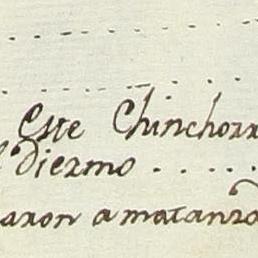 Este Chinchorr
Diezmo . . . . .
aron amatanza